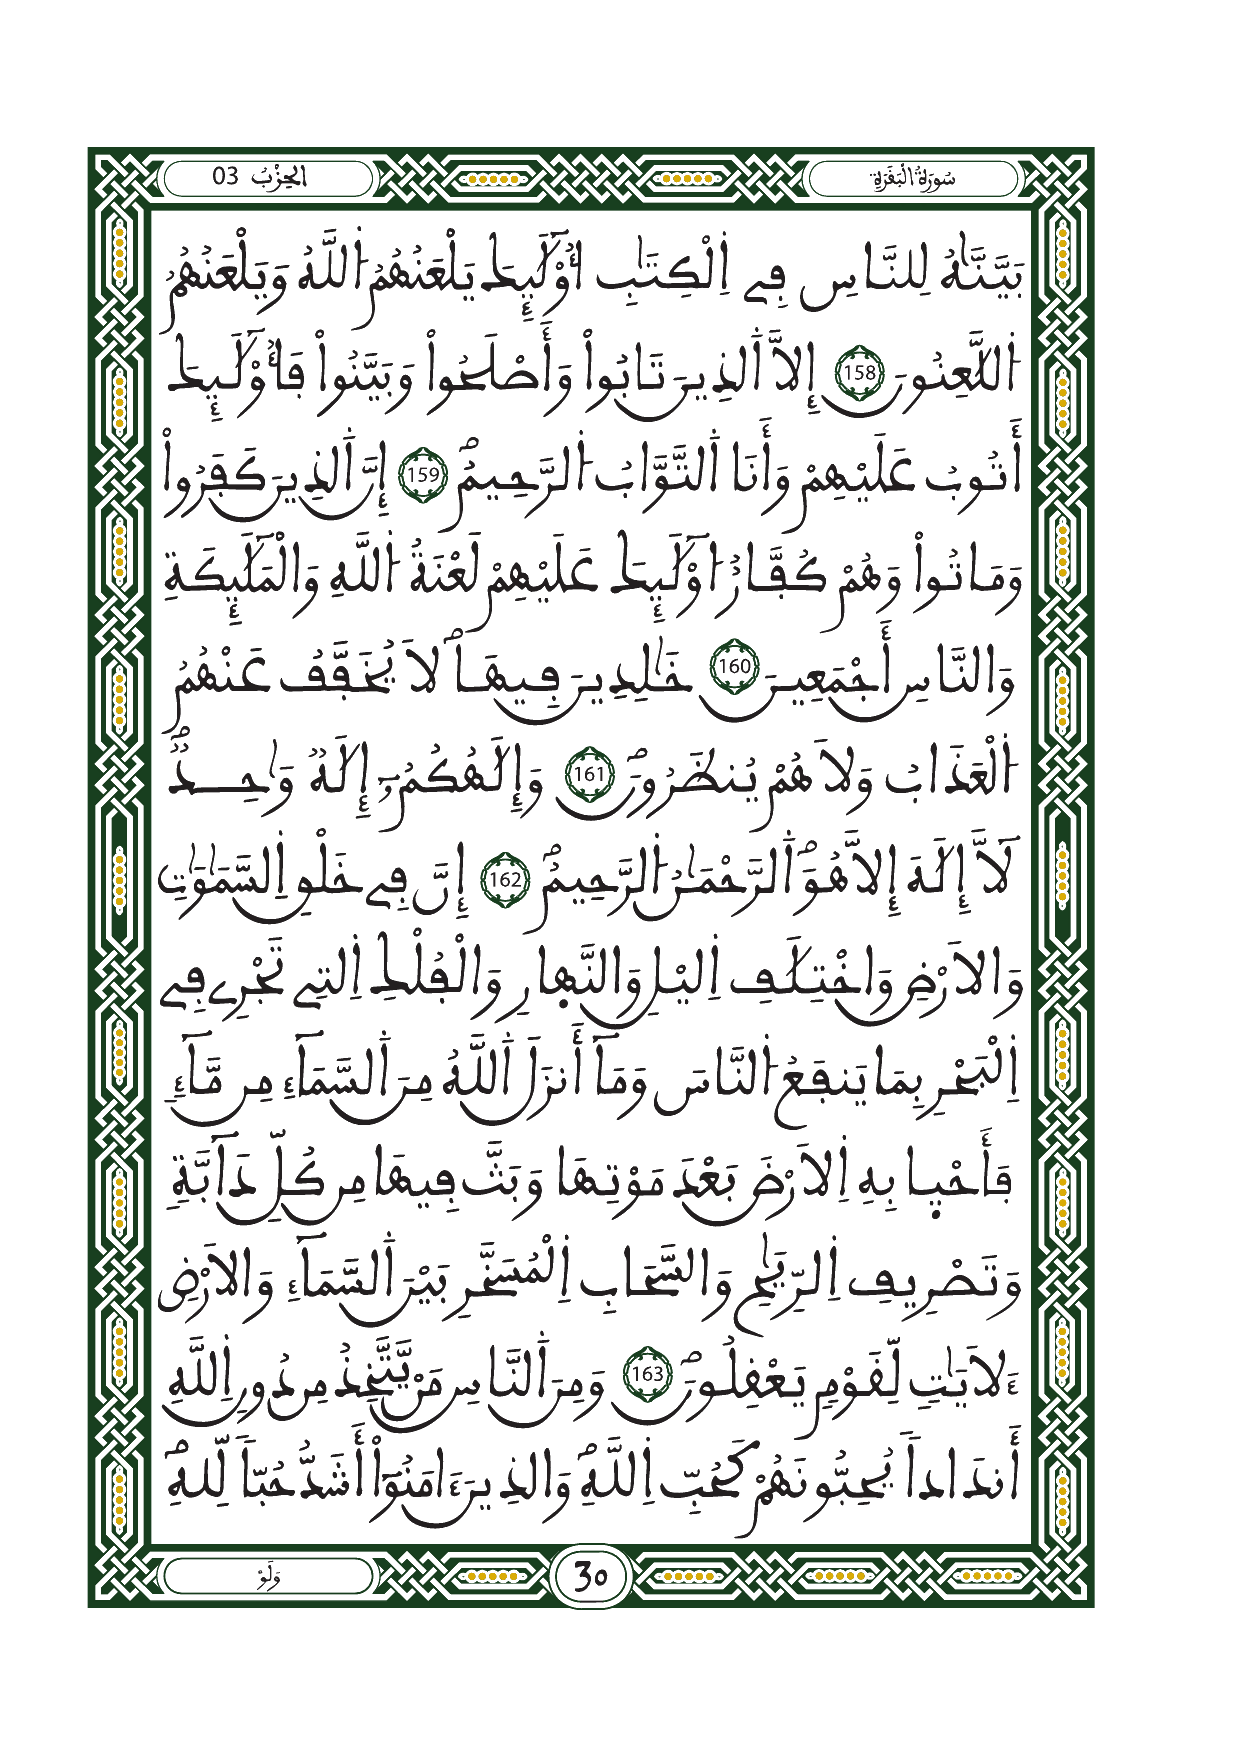 سُورَةُ الْبَقَرَةِ
الحِزْبُ 03
بَيَّنَّٰهُ لِلنَّاسِ فِے اِ۬لْكِتَٰبِ أُوْلَٰٓئِكَ يَلْعَنُهُمُ اُ۬للَّهُ وَيَلْعَنُهُمُ
اُ۬للَّٰعِنُونَ 158 إِلَّا اَ۬لذِينَ تَابُواْ وَأَصْلَحُواْ وَبَيَّنُواْ فَأُوْلَٰٓئِكَ
أَتُوبُ عَلَيْهِمْ وَأَنَا اَ۬لتَّوَّابُ اُ۬لرَّحِيمُ 159 إِنَّ اَ۬لذِينَ كَفَرُواْ
وَمَاتُواْ وَهُمْ كُفَّارٌ اُوْلَٰٓئِكَ عَلَيْهِمْ لَعْنَةُ اُ۬للَّهِ وَالْمَلَٰٓئِكَةِ
وَالنَّاسِ أَجْمَعِينَ 160 خَٰلِدِينَ فِيهَا لَا يُخَفَّفُ عَنْهُمُ
اُ۬لْعَذَابُ وَلَا هُمْ يُنظَرُونَ 161 وَإِلَٰهُكُمُۥٓ إِلَٰهٌ وَٰحِدٌ
لَّآ إِلَٰهَ إِلَّا هُوَ اَ۬لرَّحْمَٰنُ اُ۬لرَّحِيمُ 162 إِنَّ فِے خَلْقِ اِ۬لسَّمَٰوَٰتِ
وَالَارْضِ وَاخْتِلَٰفِ اِ۬ليْلِ وَالنَّهارِ وَالْفُلْكِ اِ۬لتِے تَجْرِے فِے
اِ۬لْبَحْرِ بِمَا يَنفَعُ اُ۬لنَّاسَ وَمَآ أَنزَلَ اَ۬للَّهُ مِنَ اَ۬لسَّمَآءِ مِن مَّآءٖ
فَأَحْيا بِهِ اِ۬لَارْضَ بَعْدَ مَوْتِهَا وَبَثَّ فِيهَا مِن كُلِّ دَآبَّةٖ
وَتَصْرِيفِ اِ۬لرِّيَٰحِ وَالسَّحَابِ اِ۬لْمُسَخَّرِ بَيْنَ اَ۬لسَّمَآءِ وَالَارْضِ
ءَلَايَٰتٖ لِّقَوْمٖ يَعْقِلُونَ 163 وَمِنَ اَ۬لنَّاسِ مَنْ يَّتَّخِذُ مِن دُونِ اِ۬للَّهِ
أَندَاداٗ يُحِبُّونَهُمْ كَحُبِّ اِ۬للَّهِ وَالذِينَ ءَامَنُوٓاْ أَشَدُّ حُبّاٗ لِّلهِ
وَلَوْ
30